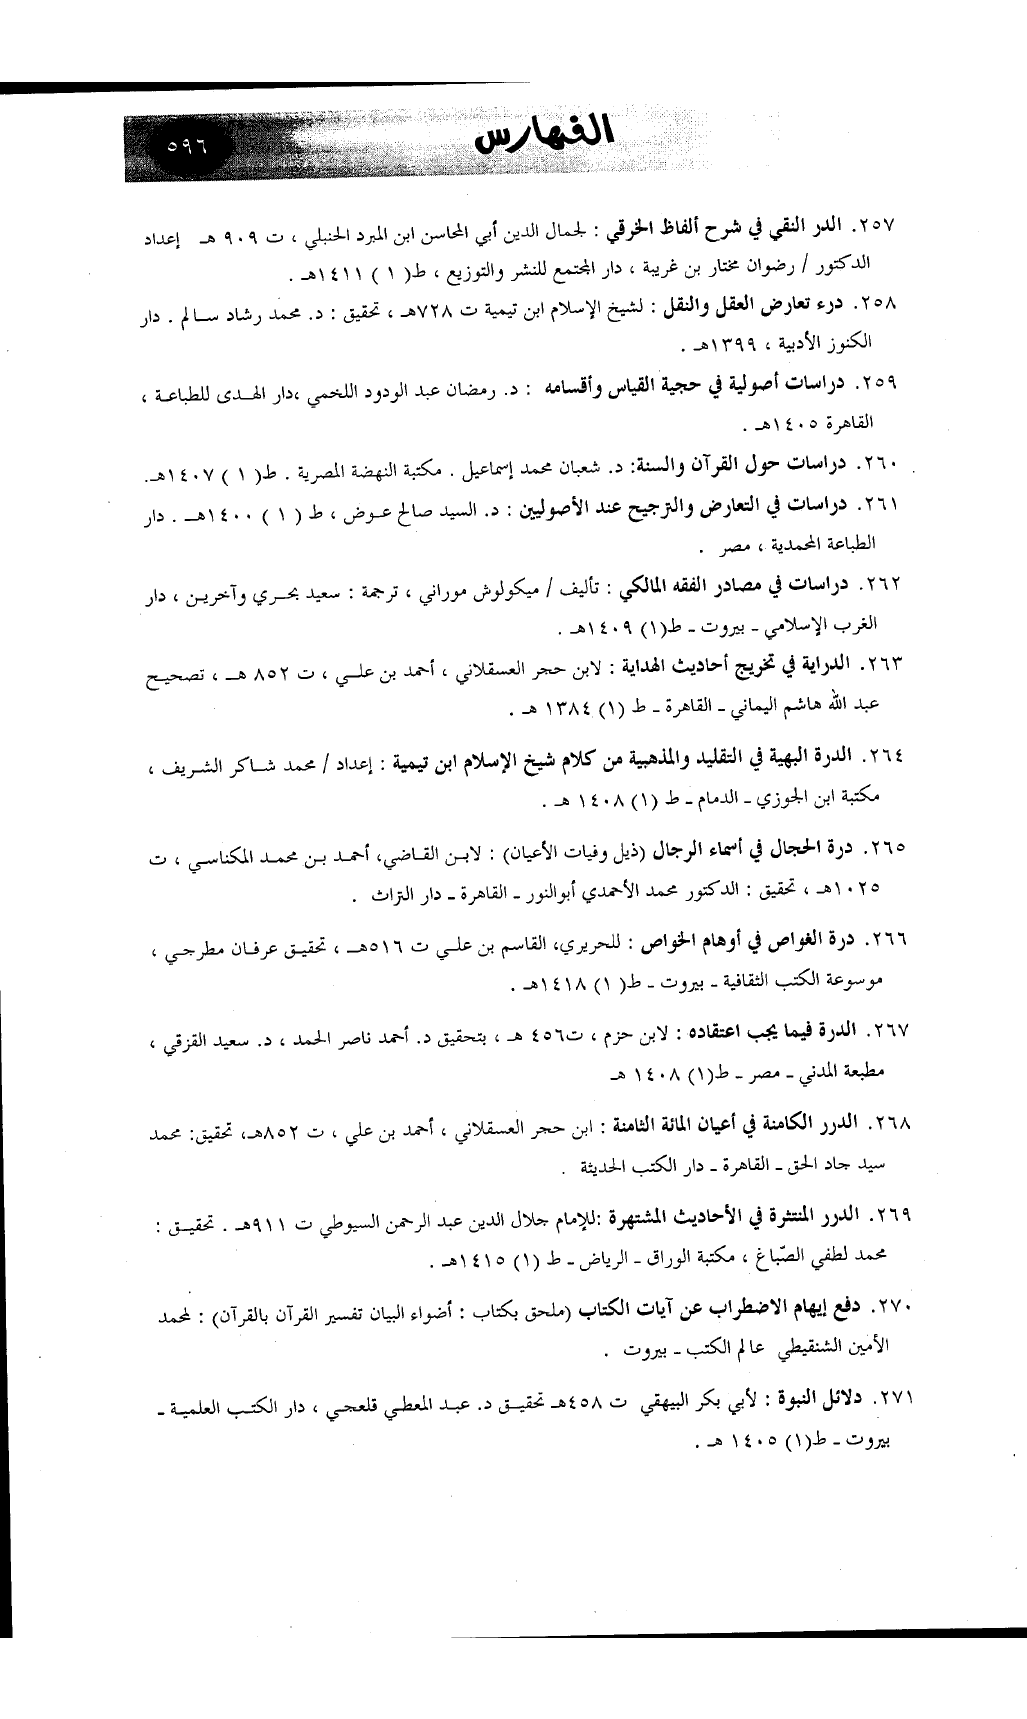 الفهارس
٥٩٦
٢٥٧. الدر النقي في شرح ألفاظ الخرقي : لجمال الدين أبي المحاسن ابن المبرد الحنبلي ، ت ٩٠٩ هـ إعداد
الدكتور / رضوان مختار بن غربية ، دار المجتمع للنشر والتوزيع ، ط( ١ ) ١٤١١هـ .
٢٥٨. درء تعارض العقل والنقل : لشيخ الإسلام ابن تيمية ت ٧٢٨هـ ، تحقيق : د. محمد رشاد سالم . دار
الكنوز الأدبية ، ١٣٩٩هـ .
٢٥٩. دراسات أصولية في حجية القياس وأقسامه : د. رمضان عبد الودود اللخمي ،دار الهدى للطباعة ،
القاهرة ١٤٠٥هـ .
٢٦٠. دراسات حول القرآن والسنة: د. شعبان محمد إسماعيل . مكتبة النهضة المصرية . ط( ١ ) ١٤٠٧هـ.
٢٦١. دراسات في التعارض والترجيح عند الأصوليين : د. السيد صالح عوض ، ط ( ١ ) ١٤٠٠هـ . دار
الطباعة المحمدية ، مصر .
٢٦٢. دراسات في مصادر الفقه المالكي : تأليف / ميكولوش موراني ، ترجمة : سعيد بحري وآخرين ، دار
الغرب الإسلامي - بيروت - ط(١) ١٤٠٩هـ .
٢٦٣. الدراية في تخريج أحاديث الهداية : لابن حجر العسقلاني ، أحمد بن علي ، ت ٨٥٢ هـ ، تصحيح
عبد الله هاشم اليماني - القاهرة - ط (١) ١٣٨٤ هـ .
٢٦٤. الدرة البهية في التقليد والمذهبية من كلام شيخ الإسلام ابن تيمية : إعداد / محمد شاكر الشريف ،
مكتبة ابن الجوزي - الدمام - ط (١) ١٤٠٨ هـ .
٢٦٥. درة الحجال في أسماء الرجال (ذيل وفيات الأعيان) : لابن القاضي، أحمد بن محمد المكناسي ، ت
١٠٢٥هـ ، تحقيق : الدكتور محمد الأحمدي أبوالنور - القاهرة - دار التراث .
٢٦٦. درة الغواص في أوهام الخواص : للحريري، القاسم بن علي ت ٥١٦هـ ، تحقيق عرفان مطرجي ،
موسوعة الكتب الثقافية - بيروت - ط( ١) ١٤١٨هـ .
٢٦٧. الدرة فيما يجب اعتقاده : لابن حزم ، ت٤٥٦ هـ ، بتحقيق د. أحمد ناصر الحمد ، د. سعيد القزقي ،
مطبعة المدني - مصر - ط(١) ١٤٠٨ هـ
٢٦٨. الدرر الكامنة في أعيان المائة الثامنة : ابن حجر العسقلاني ، أحمد بن علي ، ت ٨٥٢هـ، تحقيق: محمد
سيد جاد الحق - القاهرة - دار الكتب الحديثة .
٢٦٩. الدرر المنتثرة في الأحاديث المشتهرة :للإمام جلال الدين عبد الرحمن السيوطي ت ٩١١هـ . تحقيق :
محمد لطفي الصّباغ ، مكتبة الوراق - الرياض - ط (١) ١٤١٥هـ .
٢٧٠. دفع إيهام الاضطراب عن آيات الكتاب (ملحق بكتاب : أضواء البيان تفسير القرآن بالقرآن) : لمحمد
الأمين الشنقيطي عالم الكتب - بيروت .
٢٧١. دلائل النبوة : لأبي بكر البيهقي ت ٤٥٨هـ تحقيق د. عبد المعطي قلعجي ، دار الكتب العلمية -
بيروت - ط(١) ١٤٠٥ هـ .